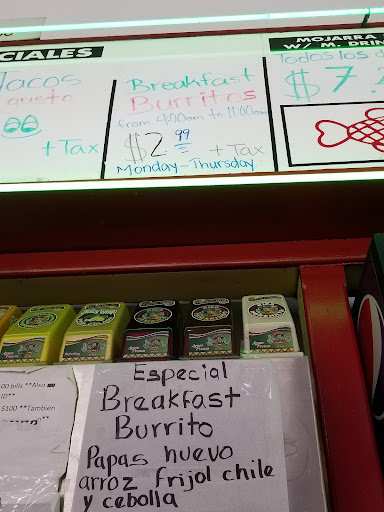 CIALES
MOJARRA
W/ M. DRIN
Tacos
gusto
+ Tax
Breakfast
Burritos
from 4:00am to 11:00am
$2.99 + Tax
Monday - Thursday
Todos los d
$7.
00 bills **Also
ID**
$100 **Tambien
Especial
Breakfast
Burrito
Papas huevo
arroz frijol chile
y cebolla